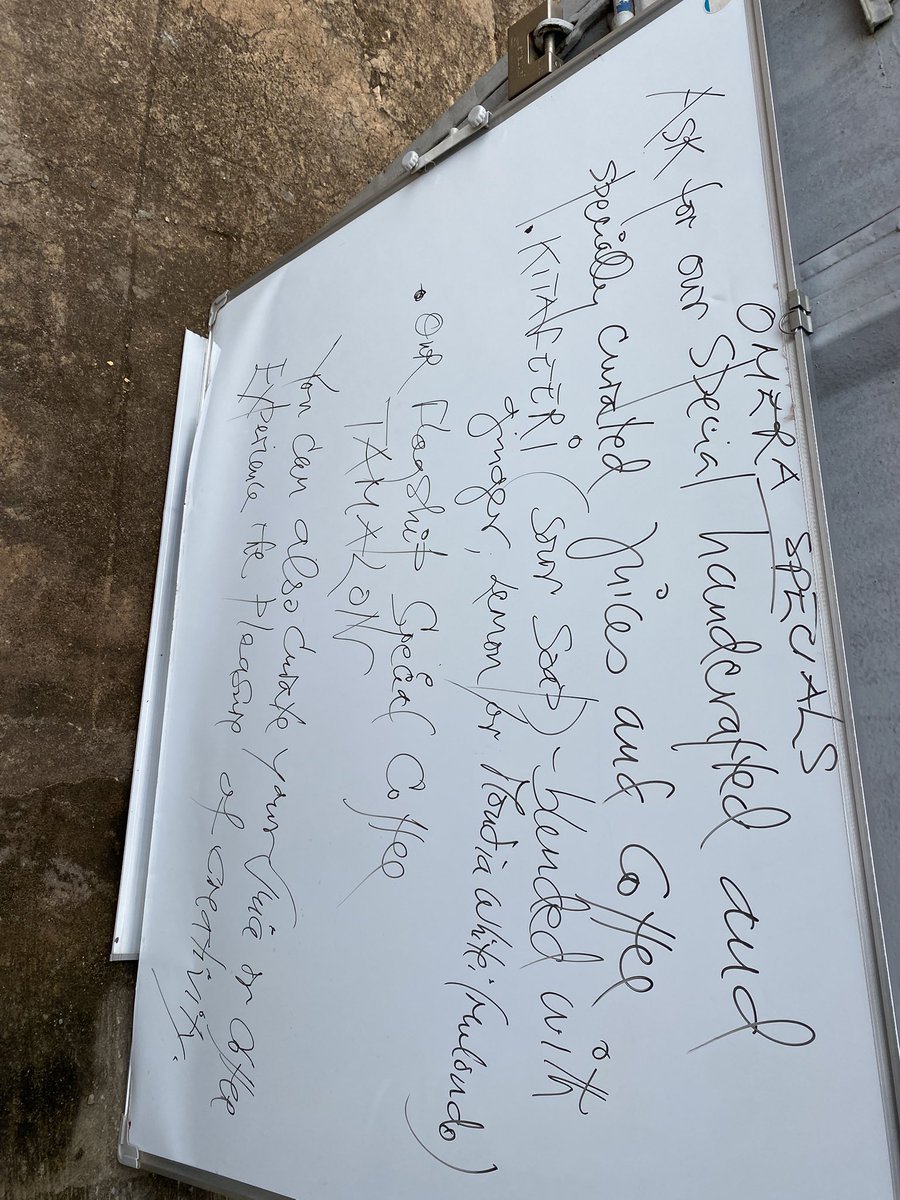 OMARA SPECIALS
Ask for our Special handcrafted and
specially curated Juices and Coffee
• KITAFEERI (Sour Sop) - blended with
ginger, lemon or (mulondo)
• Our Flagship Special Coffee
You can also curate your Juice or Coffee
Experience the pleasure of creativity.